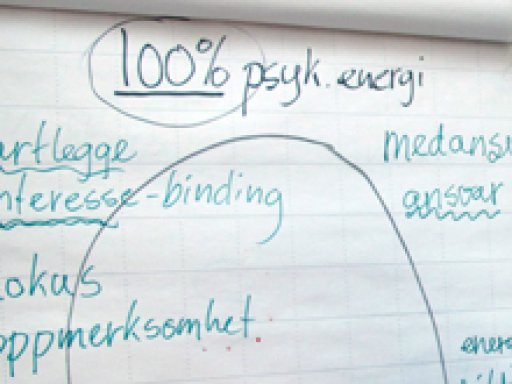 100% psyk. energi
artlegge
nteresse-binding
okus
oppmerksomhet
medansv
ansvar
energ